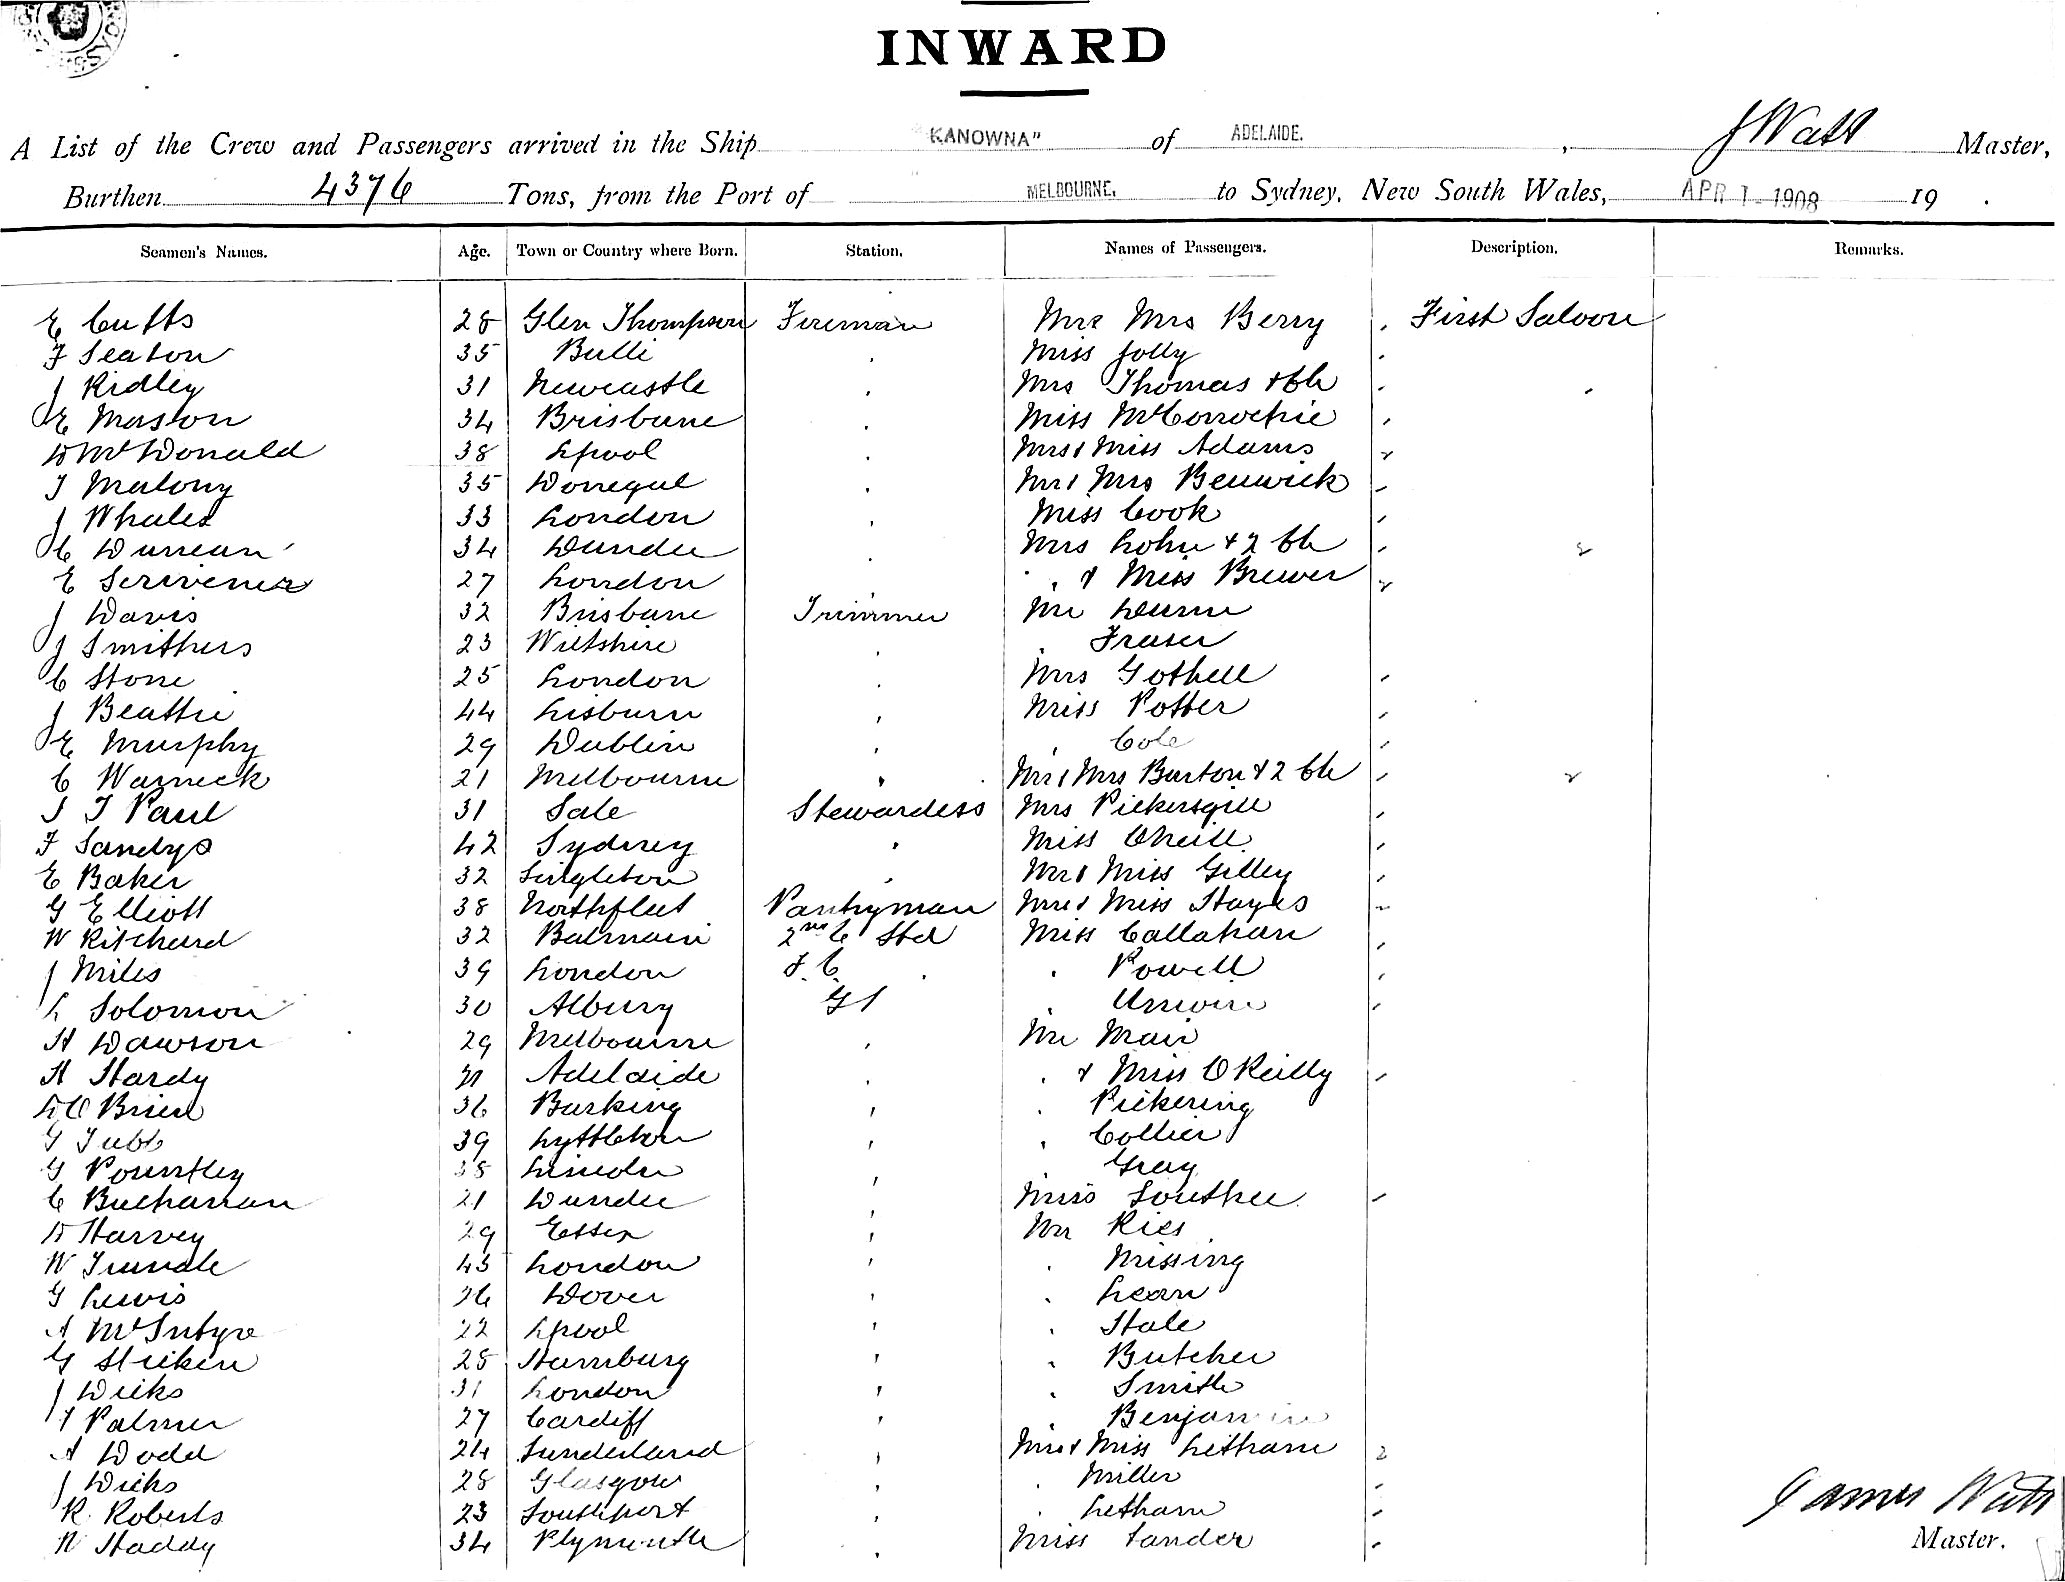 INWARD
A List of the Crew and Passengers arrived in the Ship "KANOWNA" of ADELAIDE. , J Watt Master,
Burthen 4376 Tons, from the Port of MELBOURNE, to Sydney, New South Wales, APR 1 - 1908 19 .
Seamen's Names. Age. Town or Country where Born. Station. Names of Passengers. Description. Remarks.
E Cutts 28 Glen Thompson Fireman Mr & Mrs Berry First Saloon
F Seaton 35 Bulli Miss Jolly
J Ridley 31 Newcastle Mrs Thomas & Ch
E Maston 34 Brisbane Miss McCorrochie
D McDonald 38 Lpool Mrs & Miss Adams
J Malony 35 Donegal Mr & Mrs Benwick
J Whales 33 London Miss Cook
C Duncan 34 Dundee Mrs Lohn & 2 Ch
E Scrivener 27 London " & Miss Brewer
J Davis 32 Brisbane Trimmer Mr Dunn
J Smithers 23 Wiltshire " Fraser
C Stone 25 London Mrs Gothell
J Beattie 44 Lisburn Miss Potter
E Murphy 29 Dublin " Cole
C Warneck 21 Melbourne Mr & Mrs Burton & 2 Ch
J T Paul 31 Sale Stewardess Mrs Pickersgill
F Sandys 42 Sydney Miss O'Neill
E Baker 32 Singleton Mr & Miss Gilley
G Elliott 38 Northfleet Pantryman Mr & Miss Hayes
W Ritchard 32 Balmain 2nd C Std Miss Callahan
J Miles 39 London F.C. " Powell
L Solomon 30 Albury G S " Unwin
H Dawson 29 Melbourne Mr Mair
H Hardy 21 Adelaide " & Miss O'Reilly
D O'Brien 36 Barking " Pickering
G Tubb 39 Lyttleton " Collier
G Pountley 38 Lincoln " Gray
C Buchanan 21 Dundee Miss Southee
D Harvey 29 Essex Mr Ries
W Trundle 43 London " Missing
G Lewis 26 Dover " Lean
A McIntyre 22 Lpool " Hale
G Stieken 25 Hamburg " Butcher
J Dicks 31 London " Smith
T Palmer 27 Cardiff " Benjamin
A Dodd 24 Sunderland Mrs & Miss Letham
J Dicks 28 Glasgow " Miller
R. Roberts 23 Southport " Letham
W Haddy 34 Plymouth Miss Tander
James Watt
Master.